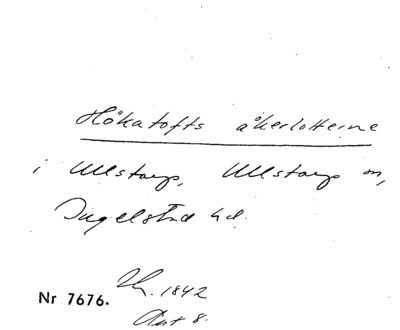 Hökatofts åkerlotterne
i Ullstorp, Ullstorps sn,
Ingelstad hd.
Nr 7676.
1842
Akt 8.